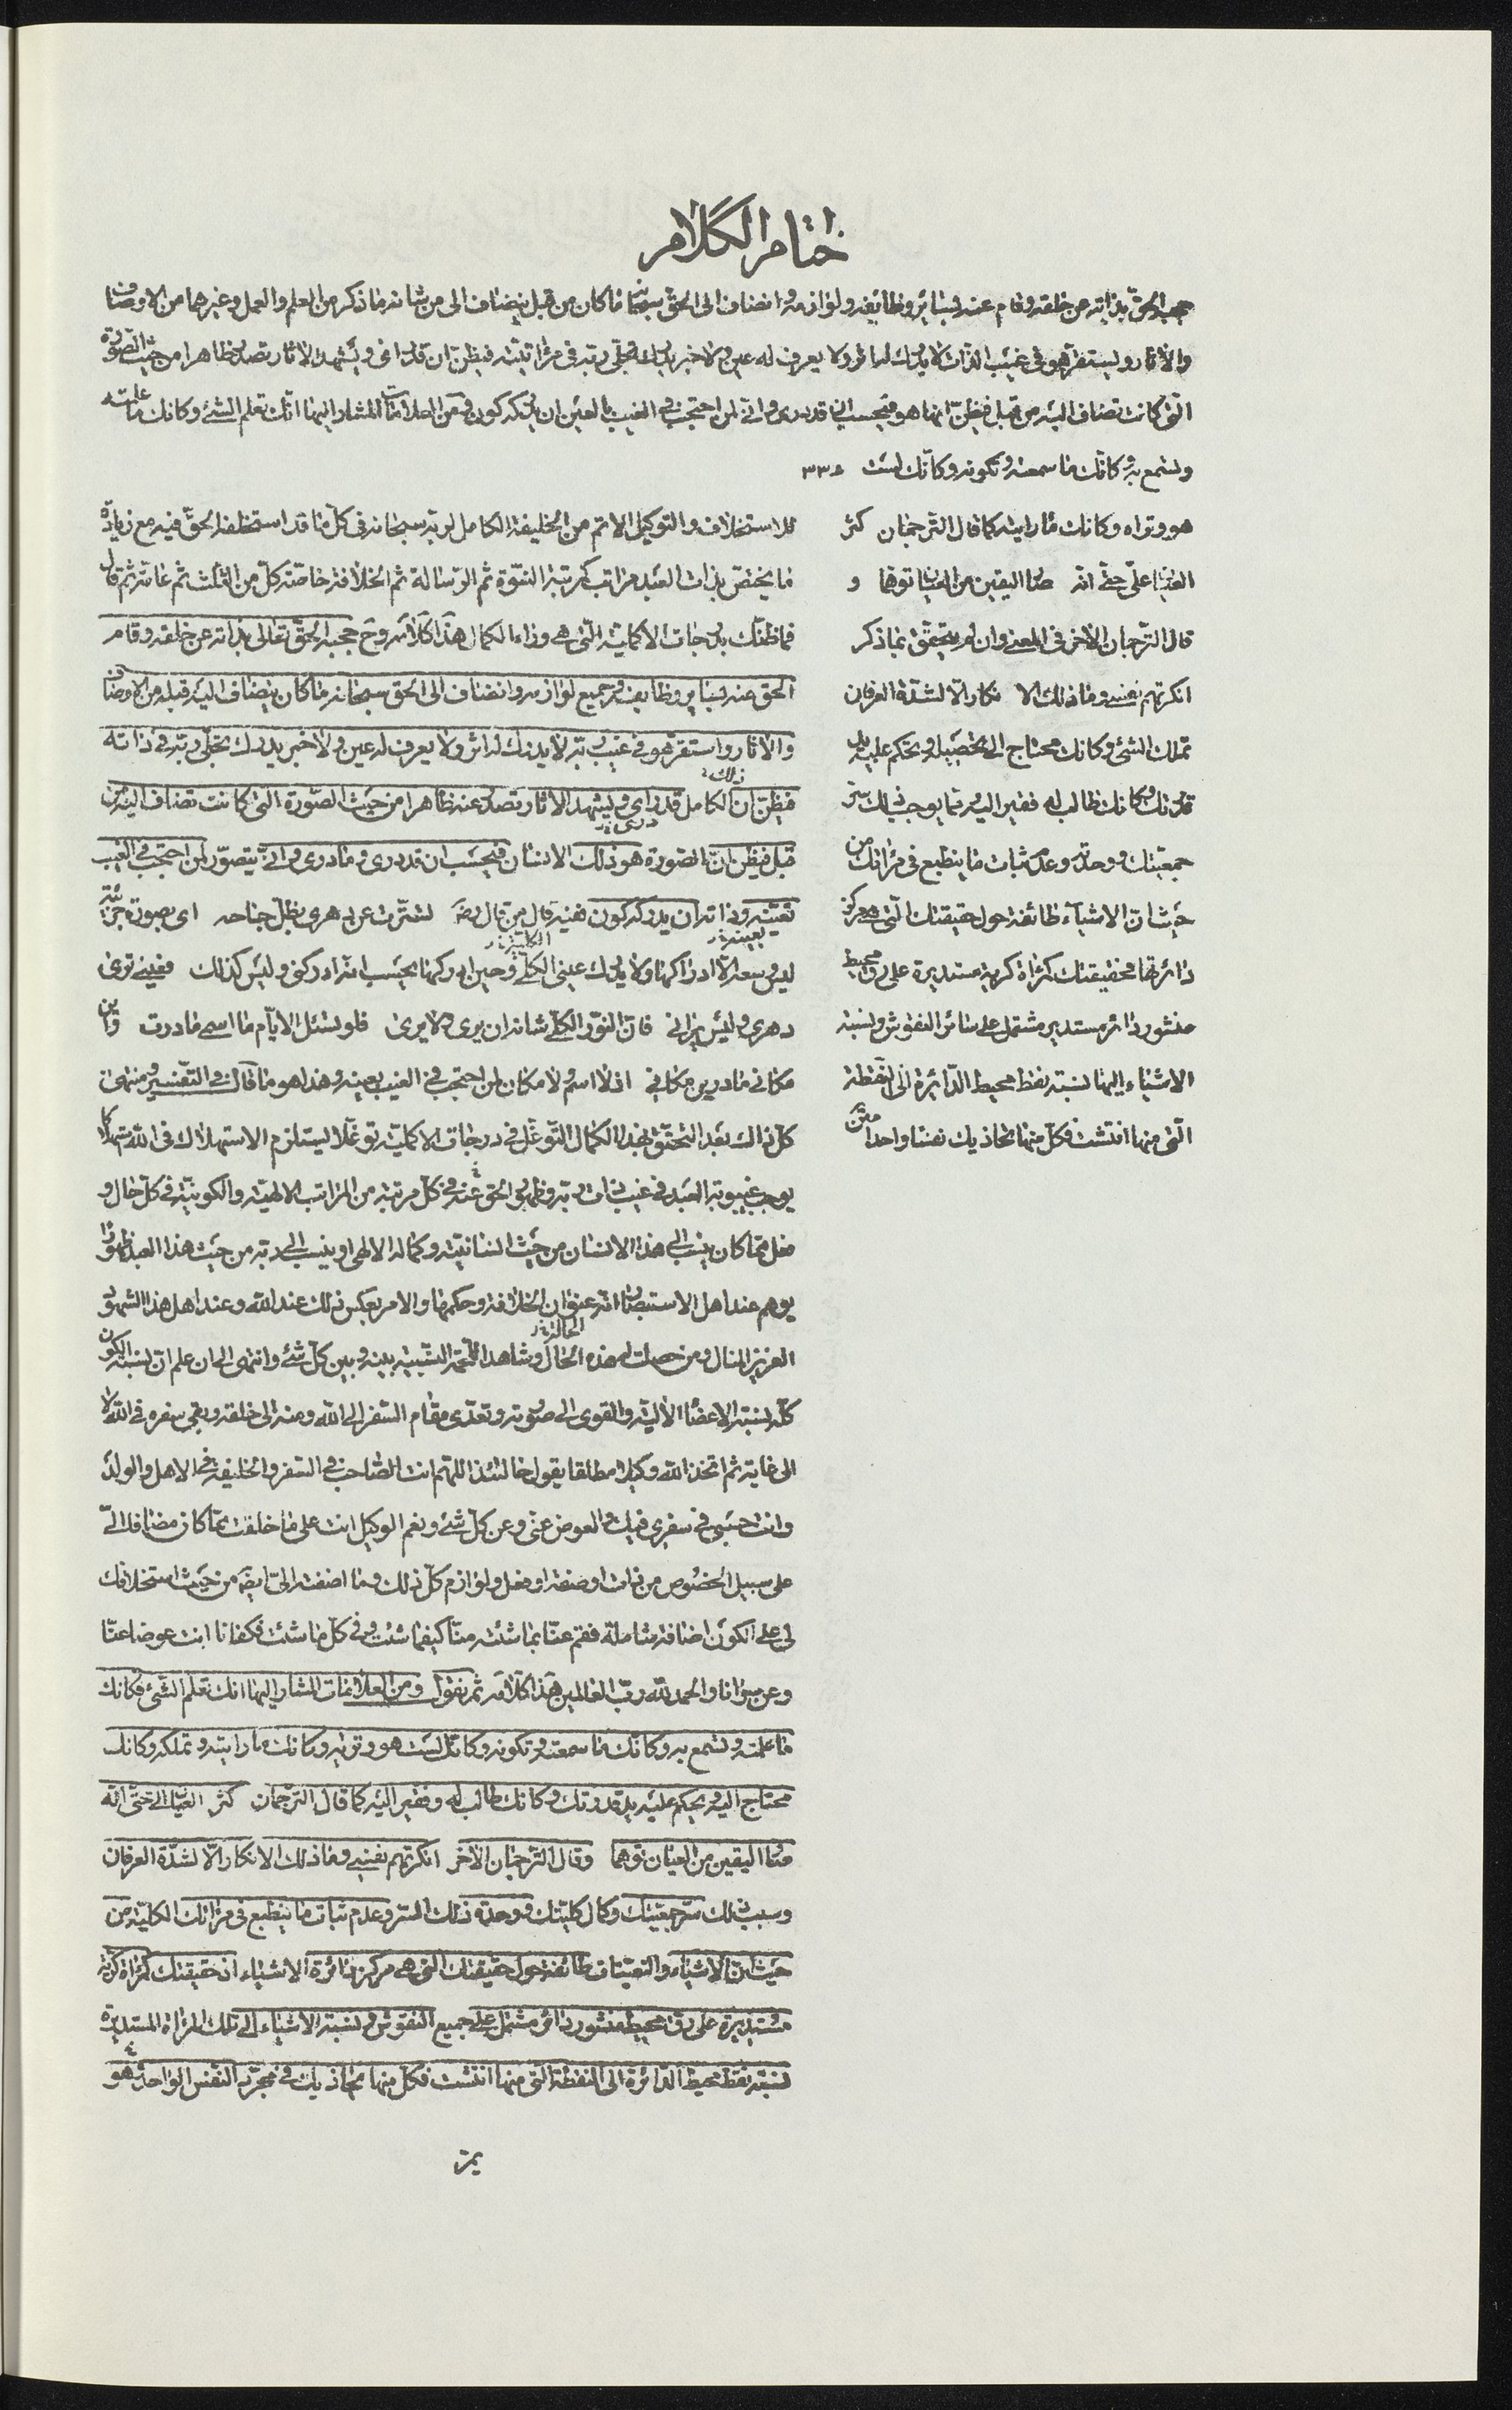 ختام الكلام
حجبه الحق بذاته عن خلقه وقام عنه بسائر وظائفه ولوازمه وانضاف الى الحق سبحانه ما كان من قبل ينضاف الى من شانه ما ذكر من العلم والعمل وغيرهما من الاوصاف
والاثار ويستقر هو فى غيب الذات لا يدرك له اثر ولا يعرف له عين ولا خبر يدرك تجلى ربه فى مراتبته فيظن ان قد راى ويشهد الاثار تصدر ظاهرا من حيث الصورة
التى كانت تضاف اليه من قبل فيظن انها هو فيحسب ان قد درى وانى لمن احتجب فى الغيب بالعين ان يدركه كون ومن العلامات المشار اليها انك تعلم الشئ وكانك ما علمته
وتسمع به وكانك ما سمعته وتكونه وكانك لست ٣٣٥
هو وتراه وكانك ما رايته كما قال الترجمان كثر
العيان على حتى انه صار اليقين من العيان توهما و
قال الترجمان الاخر فى المعنى وان لم يتحقق بما ذكر
انكرتهم نفسى وما ذلك الا نكار الا لشدة العرفان
تملك الشئ وكانك محتاج الى تحصيله وتحكم عليه بيد
قدرتك وكانك طالب له فقير اليه مما يوجب ذلك ستر
جمعيتك ووحدته وعدم ثبات ما ينطبع فى مراتك من
حيث ان الاشياء طائفة حول حقيقتك التى هى مركز
دائرتها فحقيقتك كمراة كرية مستديرة على رق محيط
منشور دائر مستدير مشتمل على سائر النقوش ونسبة
الاشياء اليها نسبة نقط محيط الدائرة الى النقطة
التى منها انتشت فكل منها يحاذيك نفسا واحدا
للاستخلاف والتوكيل الاتم من الخليفة الكامل لربه سبحانه فى كل ما قد استخلفه الحق فيه مع زيادة
ما يختص بذات العبد مراتب كمرتبة النبوة ثم الرسالة ثم الخلافة خاصة كل من الثلث ثم عامة ثم قال
فما ظنك بدرجات الاكملية التى هى وراء الكمال هذا كلامه وح حجبه الحق تعالى بذاته عن خلقه وقام
الحق عنه بسائر وظايفه وجميع لوازمه وانضاف الى الحق سبحانه ما كان ينضاف اليه قبله من الاوصاف
والاثار واستقر هو فى غيب ربه لا يدرك له اثر ولا يعرف له عين ولا خبر يدرك تجلى ربه فى ذاته
فيظن ان ذلك الكامل قد راى ويشهد الاثار تصدر عنه ظاهرا من حيث الصورة التى كانت تضاف اليه من
قبل فيظن ان الصورة هو ذلك الانسان فيحسب ان قد درى وما درى وانى يتصور لمن احتجب فى الغيب
تعينه وذاته ان يدركه كون فنيه قال من قال رضه تسترت عن دهرى بظل جناحه اى بصورة جزئية
ليس وسعه الا ادراكها ولا يدرك عينى الكلى وحين ادركها يحسب انه ادركنى وليس كذلك فعينى ترى
دهرى وليس يرانى فان النور الكلى شانه ان يرى ولا يرى فلو تسئل الايام ما اسمى ما درت واين
مكانى ما درين مكانى اذ لا اسم ولا مكان لمن احتجب فى الغيب بعينه وهذا هو ما قال فى التفسير ومنتهى
كل ذلك بعد التحقق بهذا الكمال التوغل فى درجات الاكملية توغلا يستلزم الاستهلاك فى الله استهلاكا
يوجب غيبوبة العبد فى غيب ذات ربه وظهور الحق عنه فى كل مرتبة من المراتب الالهية والكونية فى كل حال و
فعل مما كان ينسب الى هذا الانسان من حيث انسانيته وكماله الالهى او ينسب الى ربه من حيث هذا العبد ظهورا
يوهم عند اهل الاستبصار انه عنوان الخلافة وحكمها والامر بعكس ذلك عند الله وعند اهل هذا الشهود
العزيز المنال ومن حصلت له هذه الحال وشاهد اللحمة النسبية بينه وبين كل شئ وانتهى الى ان علم ان نسبة الكون
كله نسبة الاعضاء الالية والقوى الى صورته وتعدى مقام السفر الى الله ومنه الى خلقه وبقى سفره فى الله لا
الى غاية ثم اتخذ الله وكيلا مطلقا يقول حالتئذ اللهم انت الصاحب فى السفر والخليفة فى الاهل والولد
وانت حسبى فى سفرى فيك والعوض عنى وعن كل شئ ونعم الوكيل انت على ما خلقت مما كان مضافا الى
على سبيل الخصوص من ذات او صفة او فعل ولوازم كل ذلك وما اضفته الى ايضه من حيث استخلافك
لى على الكون اضافة شاملة فقم عنا بما شئته منا كيفما شئت وفى كل ما شئت فكفانا انت عوضا عنا
وعن سوانا والحمد لله رب العالمين هذا كلامه ثم نقول ومن العلامات المشار اليها انك تعلم الشئ فكانك
ما علمته وتسمع به وكانك ما سمعته وتكونه وكانك لست هو وتريه وكانك ما رايته وتملكه وكانك
محتاج اليه وتحكم عليه بيد قدرتك وكانك طالب له وفقير اليه كما قال الترجمان كثر العيان الى حتى انه
صار اليقين من العيان توهما وقال الترجمان الاخر انكرتهم نفسى وما ذلك الانكار الا لشدة العرفان
وسبب ذلك ستر جمعيتك وكمال كليتك ووحدة ذلك الستر وعدم ثبات ما ينطبع فى مراتك الكلية من
حيث ان الاشياء والتعينات طائفة حول حقيقتك التى هى مركز دائرة الاشياء اذ حقيقتك كمراة كرية
مستديرة على رق محيط منشور دائر مشتمل على جميع النقوش ونسبة الاشياء الى تلك المراة المستديرة
نسبة نقط محيط الدائرة الى النقطة التى منها انتشت فكل منها يحاذيك فى مجرد النفس الواحد هو